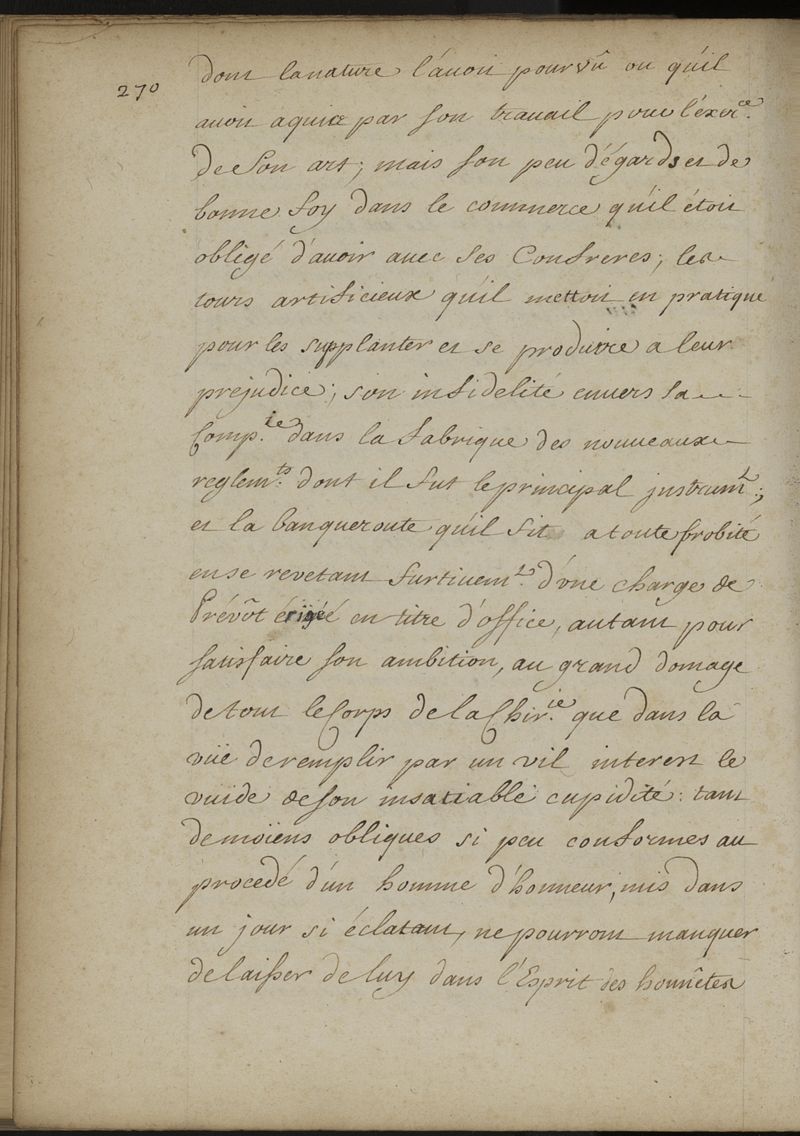 270
dont la nature l'auoit pourvû ou qu'il
auoit aquise par son trauail pour l'exer.ce
de Son art; mais son peu d'égards et de
bonne foy dans le commerce qu'il étoit
obligé d'auoir auec ses Confreres; les
tours artificieux qu'il mettoit en pratique
pour les supplanter et se produire a leur
prejudice; son infidelité enuers la
Comp.ie dans la fabrique des nouueaux
reglem.ts dont il fut le principal jnstrum.t;
et la banqueroute qu'il fit a toute probité
en se revetant furtiuem.t d'vne charge de
Prévôt érigée en titre d'office, autant pour
satisfaire son ambition, au grand domage
de tout le Corps de la Chir.ie que dans la
vüe de remplir par un vil interest le
vuide de son insatiable cupidité: tant
de moïens obliques si peu conformes au
procedé d'un homme d'honneur, mis dans
un jour si éclatant, ne pourront manquer
de laisser de luy dans l'Esprit des honnêtes